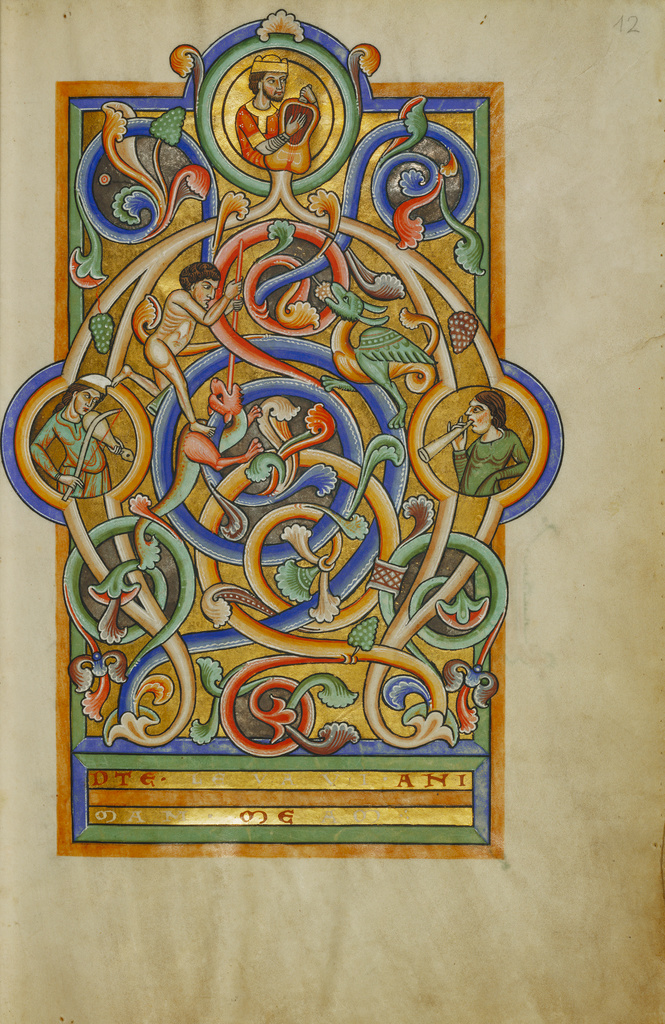 12
DTE· LEVAVI ANI
MAM ME